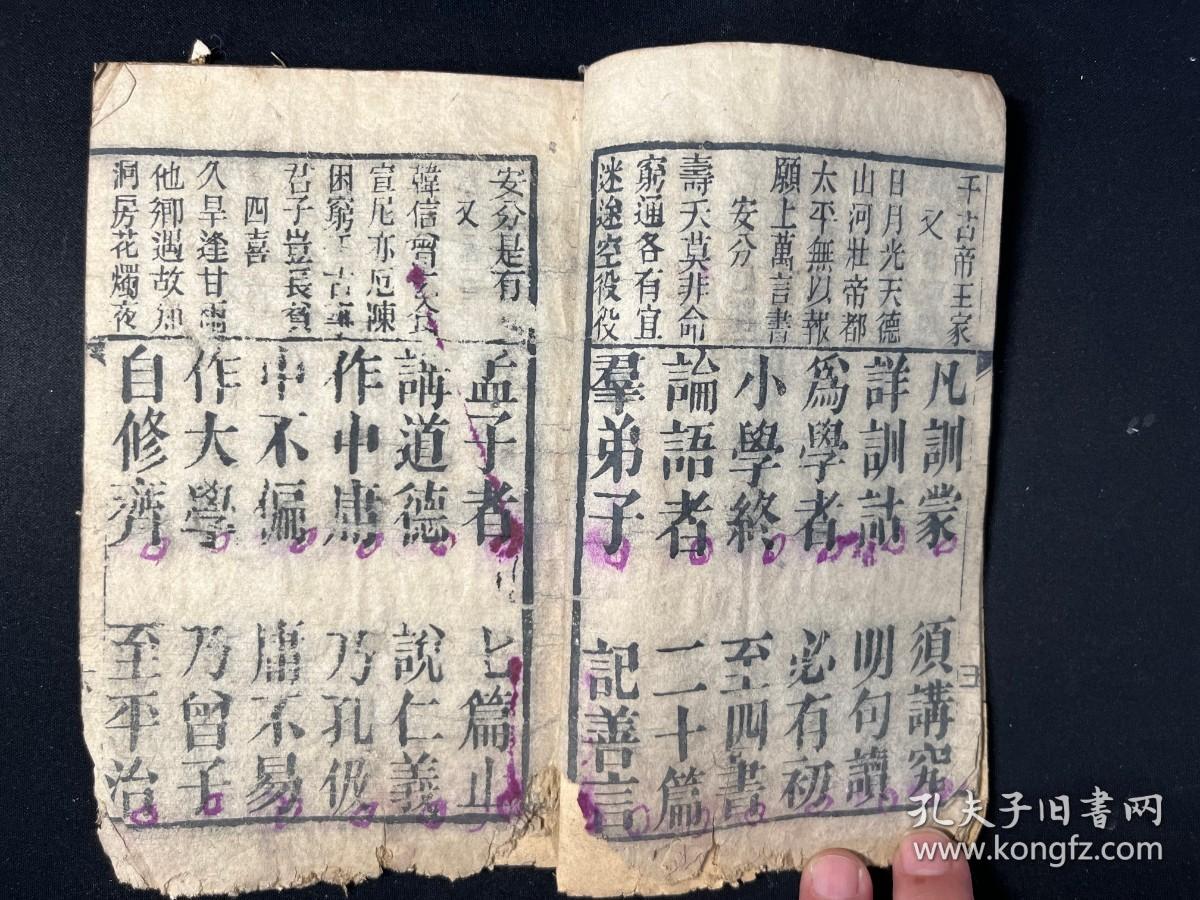 千古帝王家
又
日月光天德
山河壯帝都
太平無以報
願上萬言書
安分
壽夭莫非命
窮通各有宜
迷途空役役
凡訓蒙
須講究
詳訓詁
明句讀
為學者
必有初
小學終
至四書
論語者
二十篇
羣弟子
記善言
安分是
又
韓信曾
宣尼亦厄陳
困窮
君子豈長貧
四喜
久旱逢甘雨
他鄉遇故知
洞房花燭夜
孟子者
七篇止
講道德
說仁義
作中庸
乃孔伋
中不偏
庸不易
作大學
乃曾子
自修齊
至平治
孔夫子旧书网
www.kongfz.com